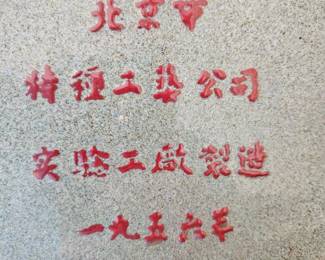 北京市
特種工艺公司
实驗工廠製造
一九五六年